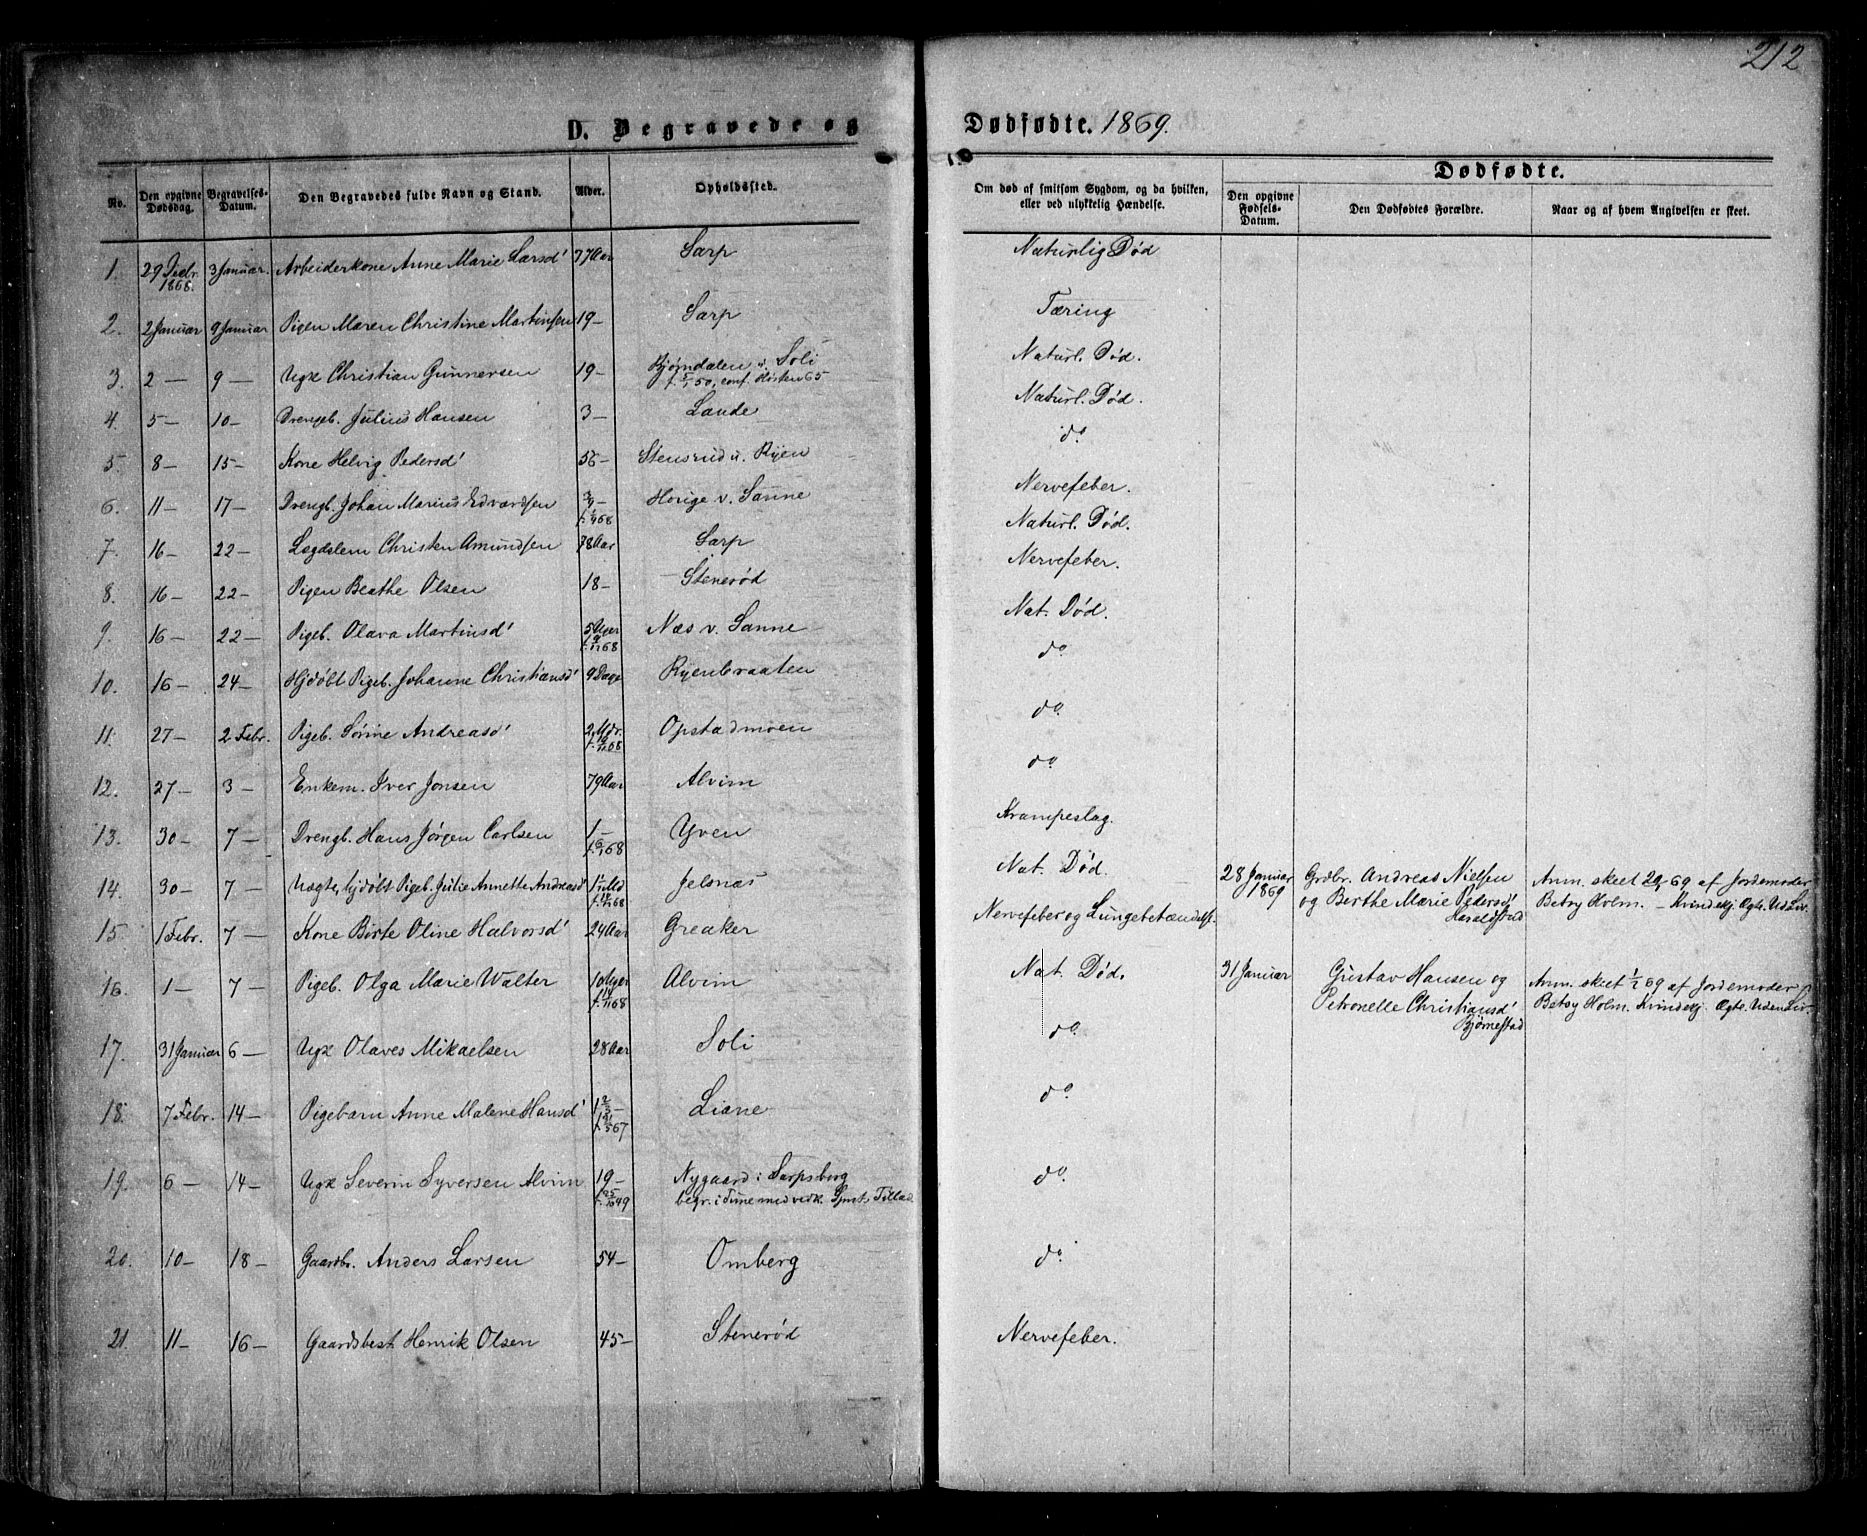 212
D. Begravede og Dødfødte. 1869.
No. Den opgivne Dødsdag. Begravelses-Datum. Den Begravedes fulde Navn og Stand. Alder. Opholdssted. Om død af smitsom Sygdom, og da hvilken, eller ved ulykkelig Hændelse. Dødfødte.
Den opgivne Fødsels-Datum. Den Dødfødtes Forældre. Naar og af hvem Angivelsen er skeet.
1. 29 Decbr. 1868. 3 Januar. Arbeiderkone Anne Marie Larsd' 77 Aar Sarp Naturlig Død
2. 2 Januar 9 Januar Pigen Maren Christine Martinsen 19 - Sarp Tæring
3. 2 — 9 — Ugk Christian Gunnersen 19 - Bjørndalen u. Soli Naturl. Død.
f. 5/1 50, conf. Høsten 65
4. 5 — 10 - Drengeb. Julius Hansen 3 — Lande Naturl. Død.
5. 8 — 15 - Kone Helvig Pedersd' 56 - Stensrud u. Ryen do
6. 11 - 17 - Drengb. Johan Marius Edvardsen 3/4 - Horige v. Sanne Nervefeber.
7. 16 - 22 - Lægdslem Christen Amundsen 78 Aar Sarp Naturl. Død.
8. 16 - 22 - Pigen Beathe Olsen 18 - Stenerød Nervefeber.
9. 16 - 22 - Pigeb. Olava Martinsd' 5 Uger Næs v. Sanne Nat. Død.
10. 16 - 24 - Hjdøbt Pigeb. Johanne Christiansd' 9 Dage Ryenbraaten do
11. 27 - 2 Febr. Pigeb. Sørine Andreasd' 2 Mdr. Opstadmoen do
12. 27 - 3 - Enkem. Iver Jonsen 79 Aar Alvim do
13. 30 - 7 - Drengb. Hans Jørgen Carlsen 1 - Yven Krampeslag.
14. 30 - 7 - Uægte, hjdøbt Pigeb. Julie Annette Andreasd' Jelsnæs Nat. Død.
28 Januar 1869 Grdbr. Andreas Nielsen og Berthe Marie Pedersd' Haraldstad Anm. skeet 69 af Jordemoder Betsy Holm. - Kvindekj. Ægte. Uden Liv.
15. 1 Febr. 7 - Kone Birte Oline Halvorsd' 24 Aar Greaker Nervefeber og Lungebetændelse.
16. 1 - 7 - Pigeb. Olga Marie Walter 10 Uger Alvim Nat. Død.
31 Januar Gustav Hansen og Petronelle Christiansd' Bjørnestad Anm. skeet 1/2 69 af Jordemoder Betsy Holm. Kvindekj. Ægte. Uden Liv.
17. 31 Januar 6 - Ugk Olaves Mikaelsen 28 Aar Soli do
18. 7 Febr. 14 - Pigebarn Anne Malene Hansd' Liane do
19. 6 - 14 - Ugk Severin Syversen Alvim 19 - Nygaard i Sarpsborg do
begr. i Tune med vedk. Tillad.
20. 10 - 18 - Gaardbr. Anders Larsen 54 - Omberg do
21. 11 - 16 - Gaardsbest. Henrik Olsen 45 - Stenerød Nervefeber.